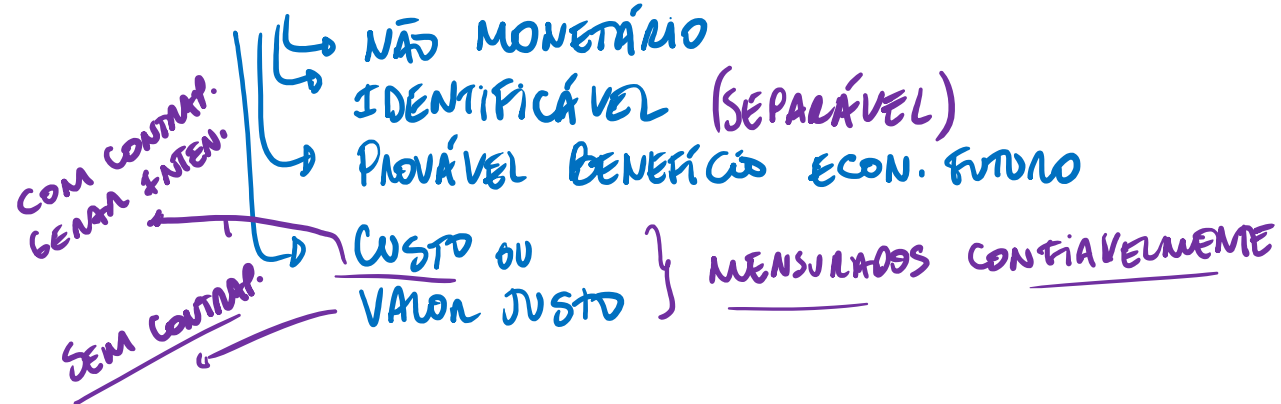 NÃO MONETÁRIO
IDENTIFICÁVEL (SEPARÁVEL)
PROVÁVEL BENEFÍCIO ECON. FUTURO
COM CONTRAP.
GERAR INTEN.
CUSTO OU
VALOR JUSTO
MENSURADOS CONFIAVELMENTE
SEM CONTRAP.